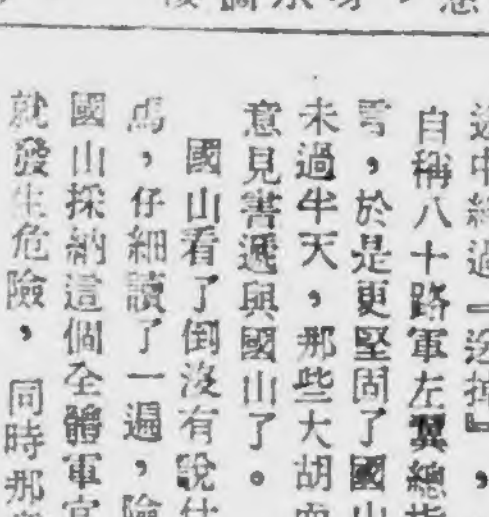 途中經過『逃掉』，
自稱八十路軍左翼總指
，於是更堅固了國山
未過半天，那些大胡
意見書遞與國山了。
國山看了倒沒有說什
，仔細讀了一遍，險
國山採納這個全體軍官
就發生危險，同時那